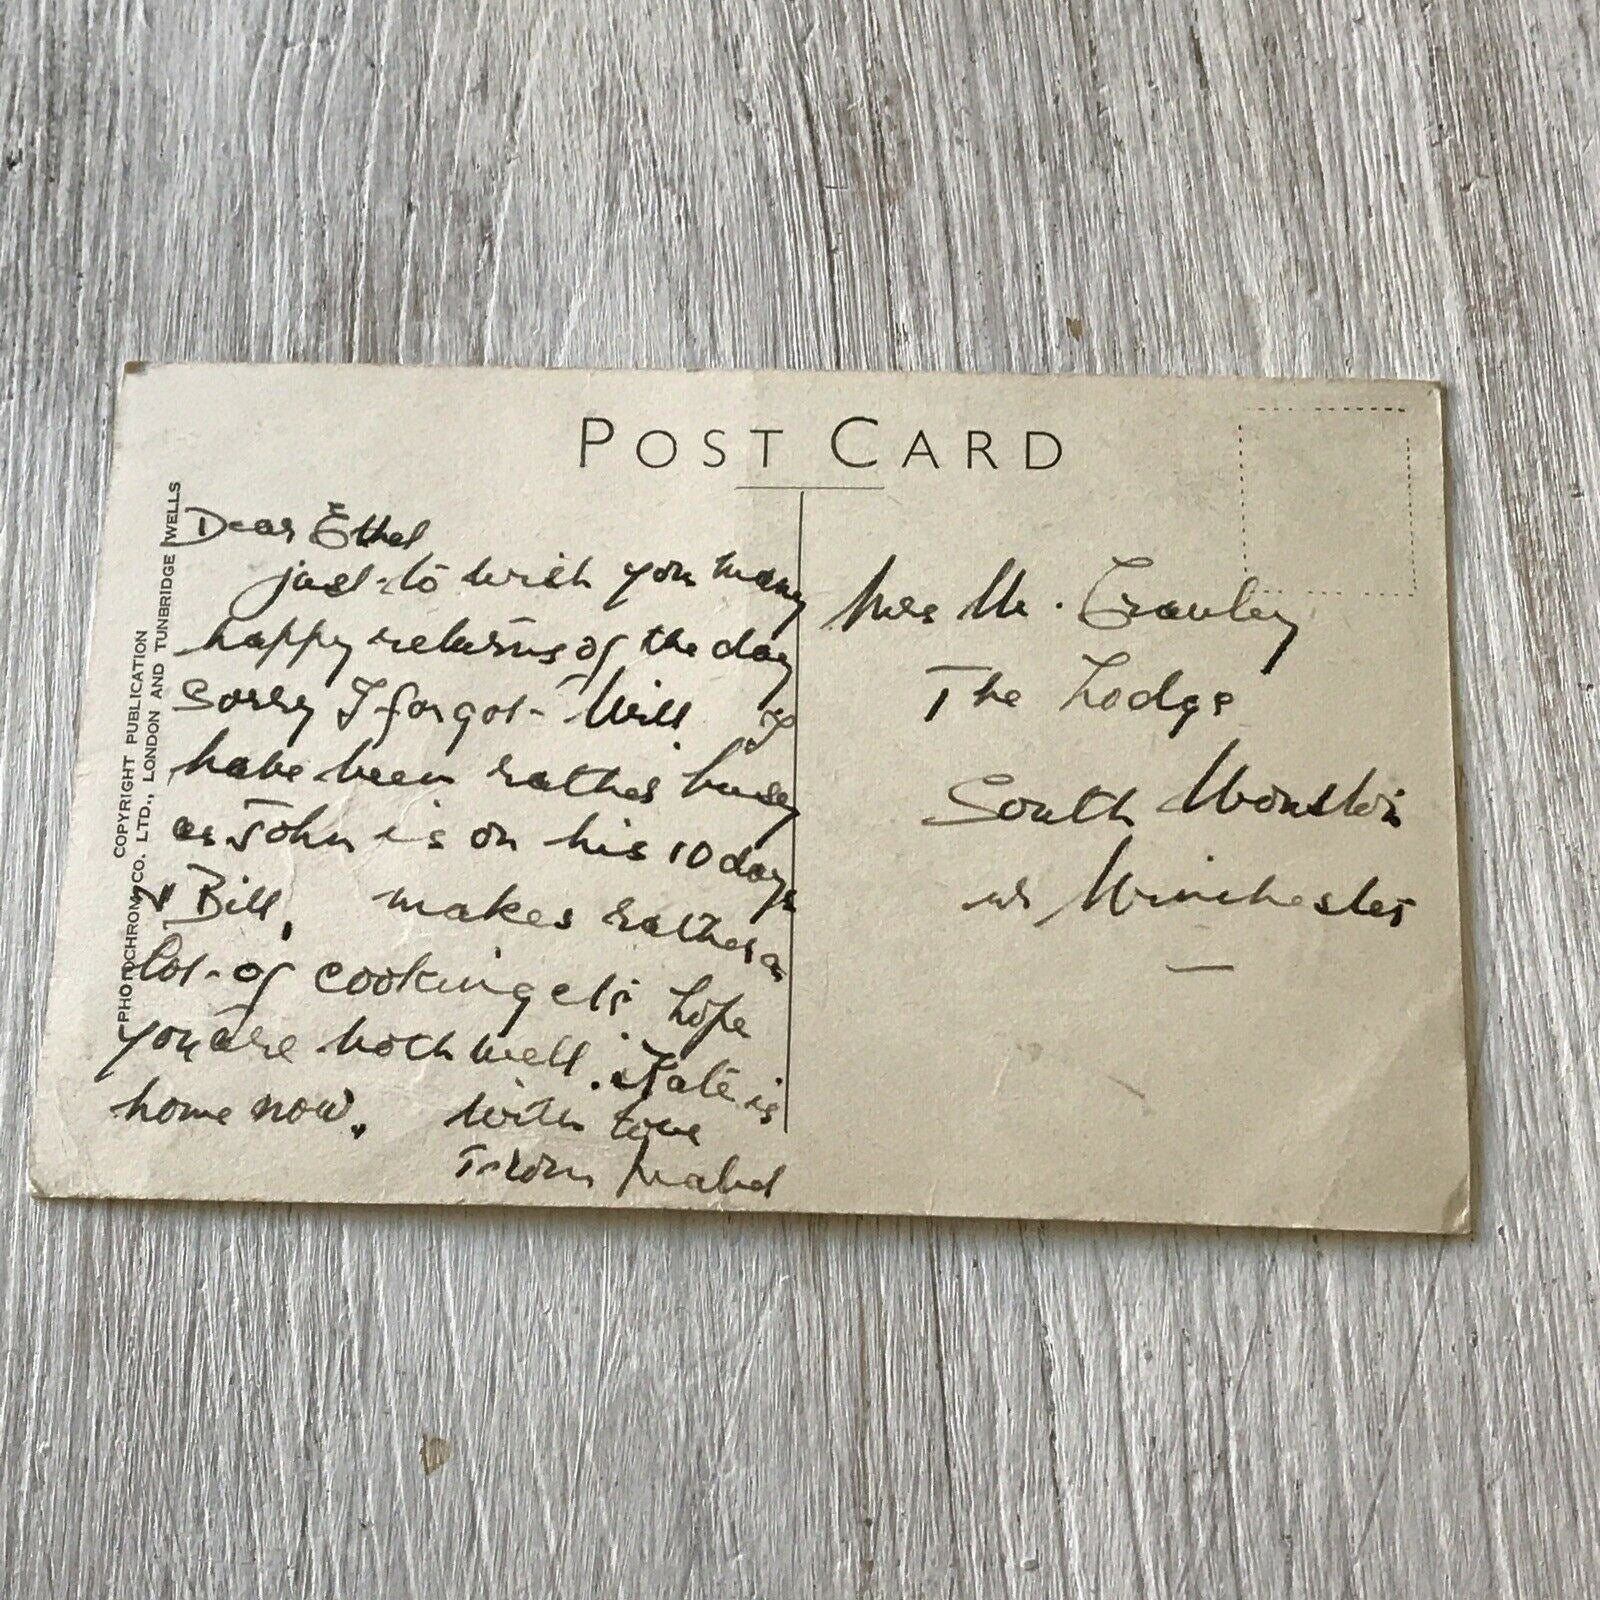 POST CARD
COPYRIGHT PUBLICATION
PHOTOCHROM CO. LTD., LONDON AND TUNBRIDGE WELLS
Dear Ethel
just to wish you many
happy returns of the day
Sorry I forgot Will
have been rather busy
as John is on his 10 days
& Bill, makes rather a
lot of cooking etc hope
you are both well. Kate is
home now. With love
From Mabel
Mrs M.
The Lodge
South Wonston
nr Winchester